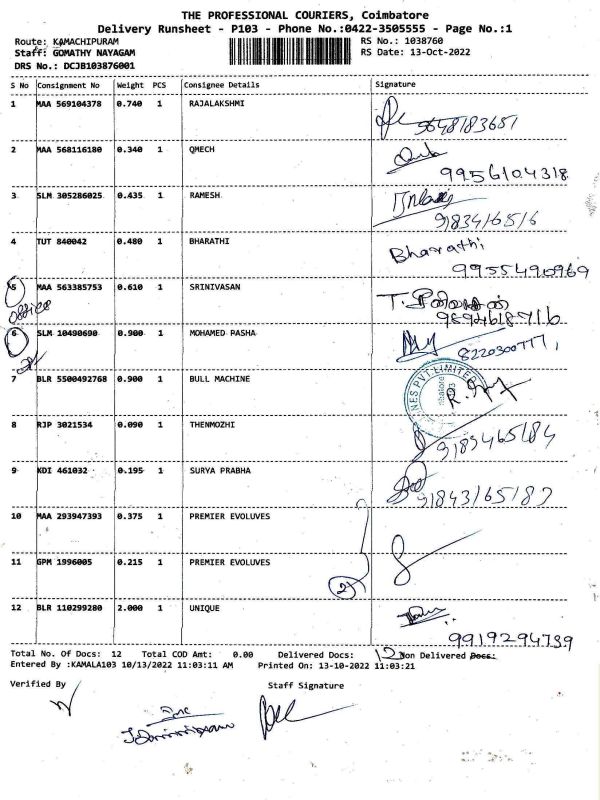 THE PROFESSIONAL COURIERS, Coimbatore
Delivery Runsheet - P103 - Phone No.:0422-3505555 - Page No.:1
Route: KAMACHIPURAM RS No.: 1038760
Staff: GOMATHY NAYAGAM RS Date: 13-Oct-2022
DRS No.: DCJB103876001
S No Consignment No Weight PCS Consignee Details Signature
1 MAA 569104378 0.740 1 RAJALAKSHMI
2 MAA 568116180 0.340 1 QMECH
9956104318
3 SLM 305286025 0.435 1 RAMESH
4 TUT 840042 0.480 1 BHARATHI Bharathi
9955490969
5 MAA 563385753 0.610 1 SRINIVASAN
office
6 SLM 10490690 0.900 1 MOHAMED PASHA
8220300777
7 BLR 5500492768 0.900 1 BULL MACHINE
8 RJP 3021534 0.090 1 THENMOZHI
9 KDI 461032 0.195 1 SURYA PRABHA
10 MAA 293947393 0.375 1 PREMIER EVOLUVES
11 GPM 1996005 0.215 1 PREMIER EVOLUVES
2
12 BLR 110299280 2.000 1 UNIQUE
9919294739
Total No. Of Docs: 12 Total COD Amt: 0.00 Delivered Docs: 12 Non Delivered Docs:
Entered By :KAMALA103 10/13/2022 11:03:11 AM Printed On: 13-10-2022 11:03:21
Verified By Staff Signature